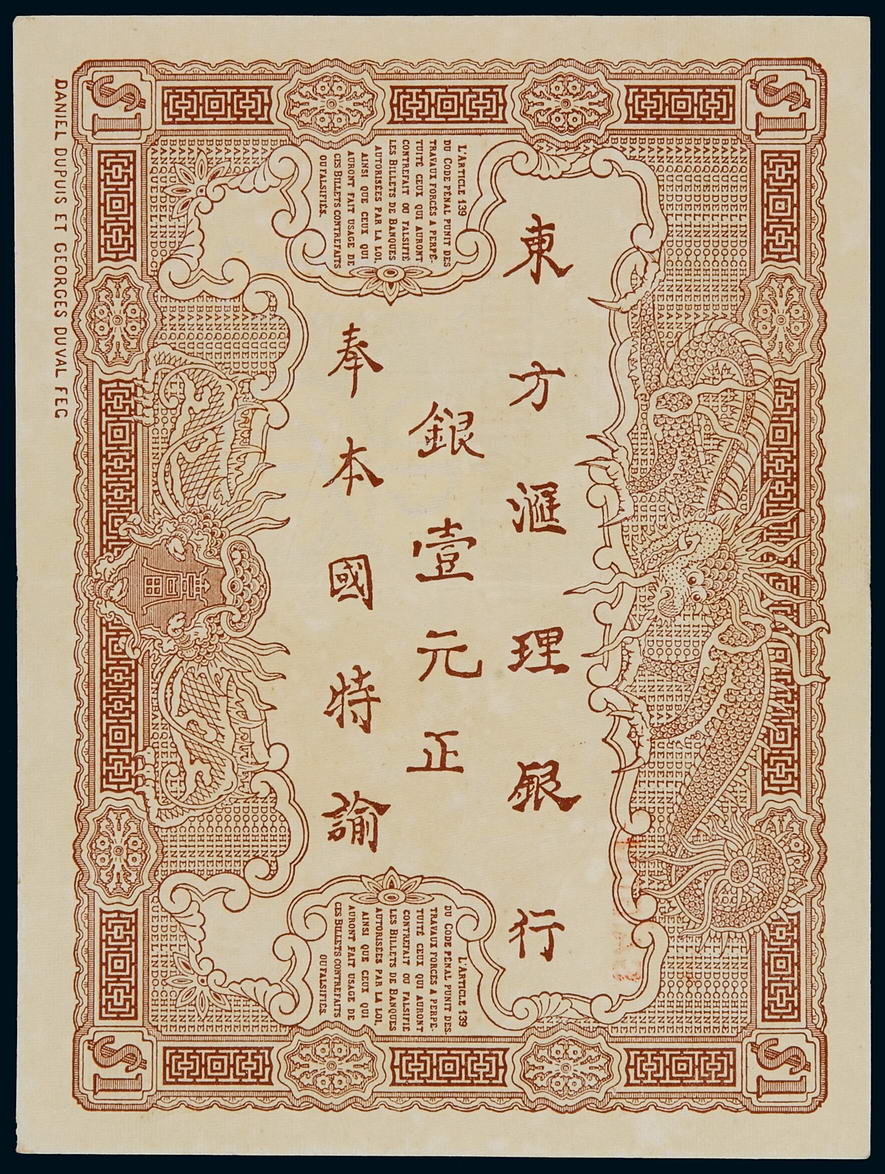 $1
$1
L'ARTICLE 139
DU CODE PÉNAL PUNIT DES
TRAVAUX FORCÉS A PERPÉ-
TUITÉ CEUX QUI AURONT
CONTREFAIT OU FALSIFIÉ
LES BILLETS DE BANQUES
AUTORISÉES PAR LA LOI,
AINSI QUE CEUX QUI
AURONT FAIT USAGE DE
CES BILLETS CONTREFAITS
OU FALSIFIÉS.
東方滙理銀行
銀壹元正
奉本國特諭
L'ARTICLE 139
DU CODE PÉNAL PUNIT DES
TRAVAUX FORCÉS A PERPÉ-
TUITÉ CEUX QUI AURONT
CONTREFAIT OU FALSIFIÉ
LES BILLETS DE BANQUES
AUTORISÉES PAR LA LOI,
AINSI QUE CEUX QUI
AURONT FAIT USAGE DE
CES BILLETS CONTREFAITS
OU FALSIFIÉS.
$1
$1
DANIEL DUPUIS ET GEORGES DUVAL FEC